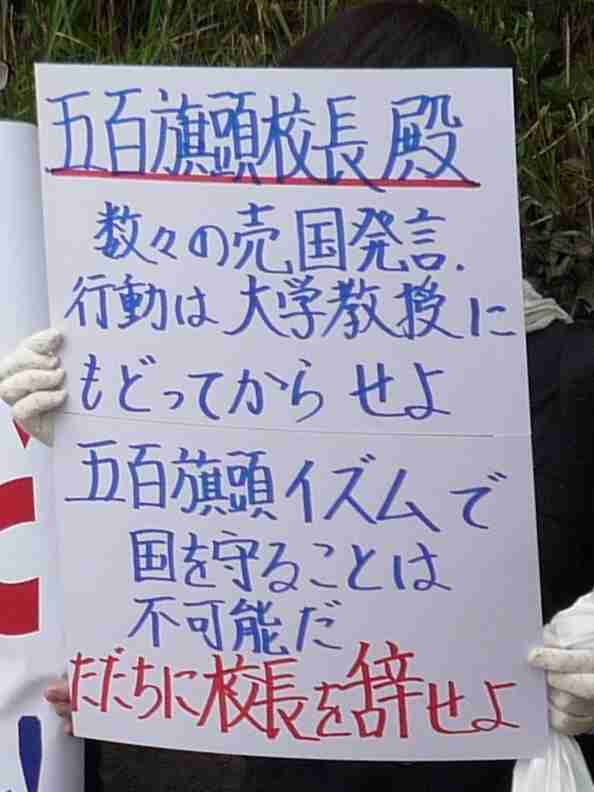 五百旗頭校長殿
数々の売国発言.
行動は大学教授に
もどってからせよ
五百旗頭イズムで
国を守ることは
不可能だ
ただちに校長を辞せよ